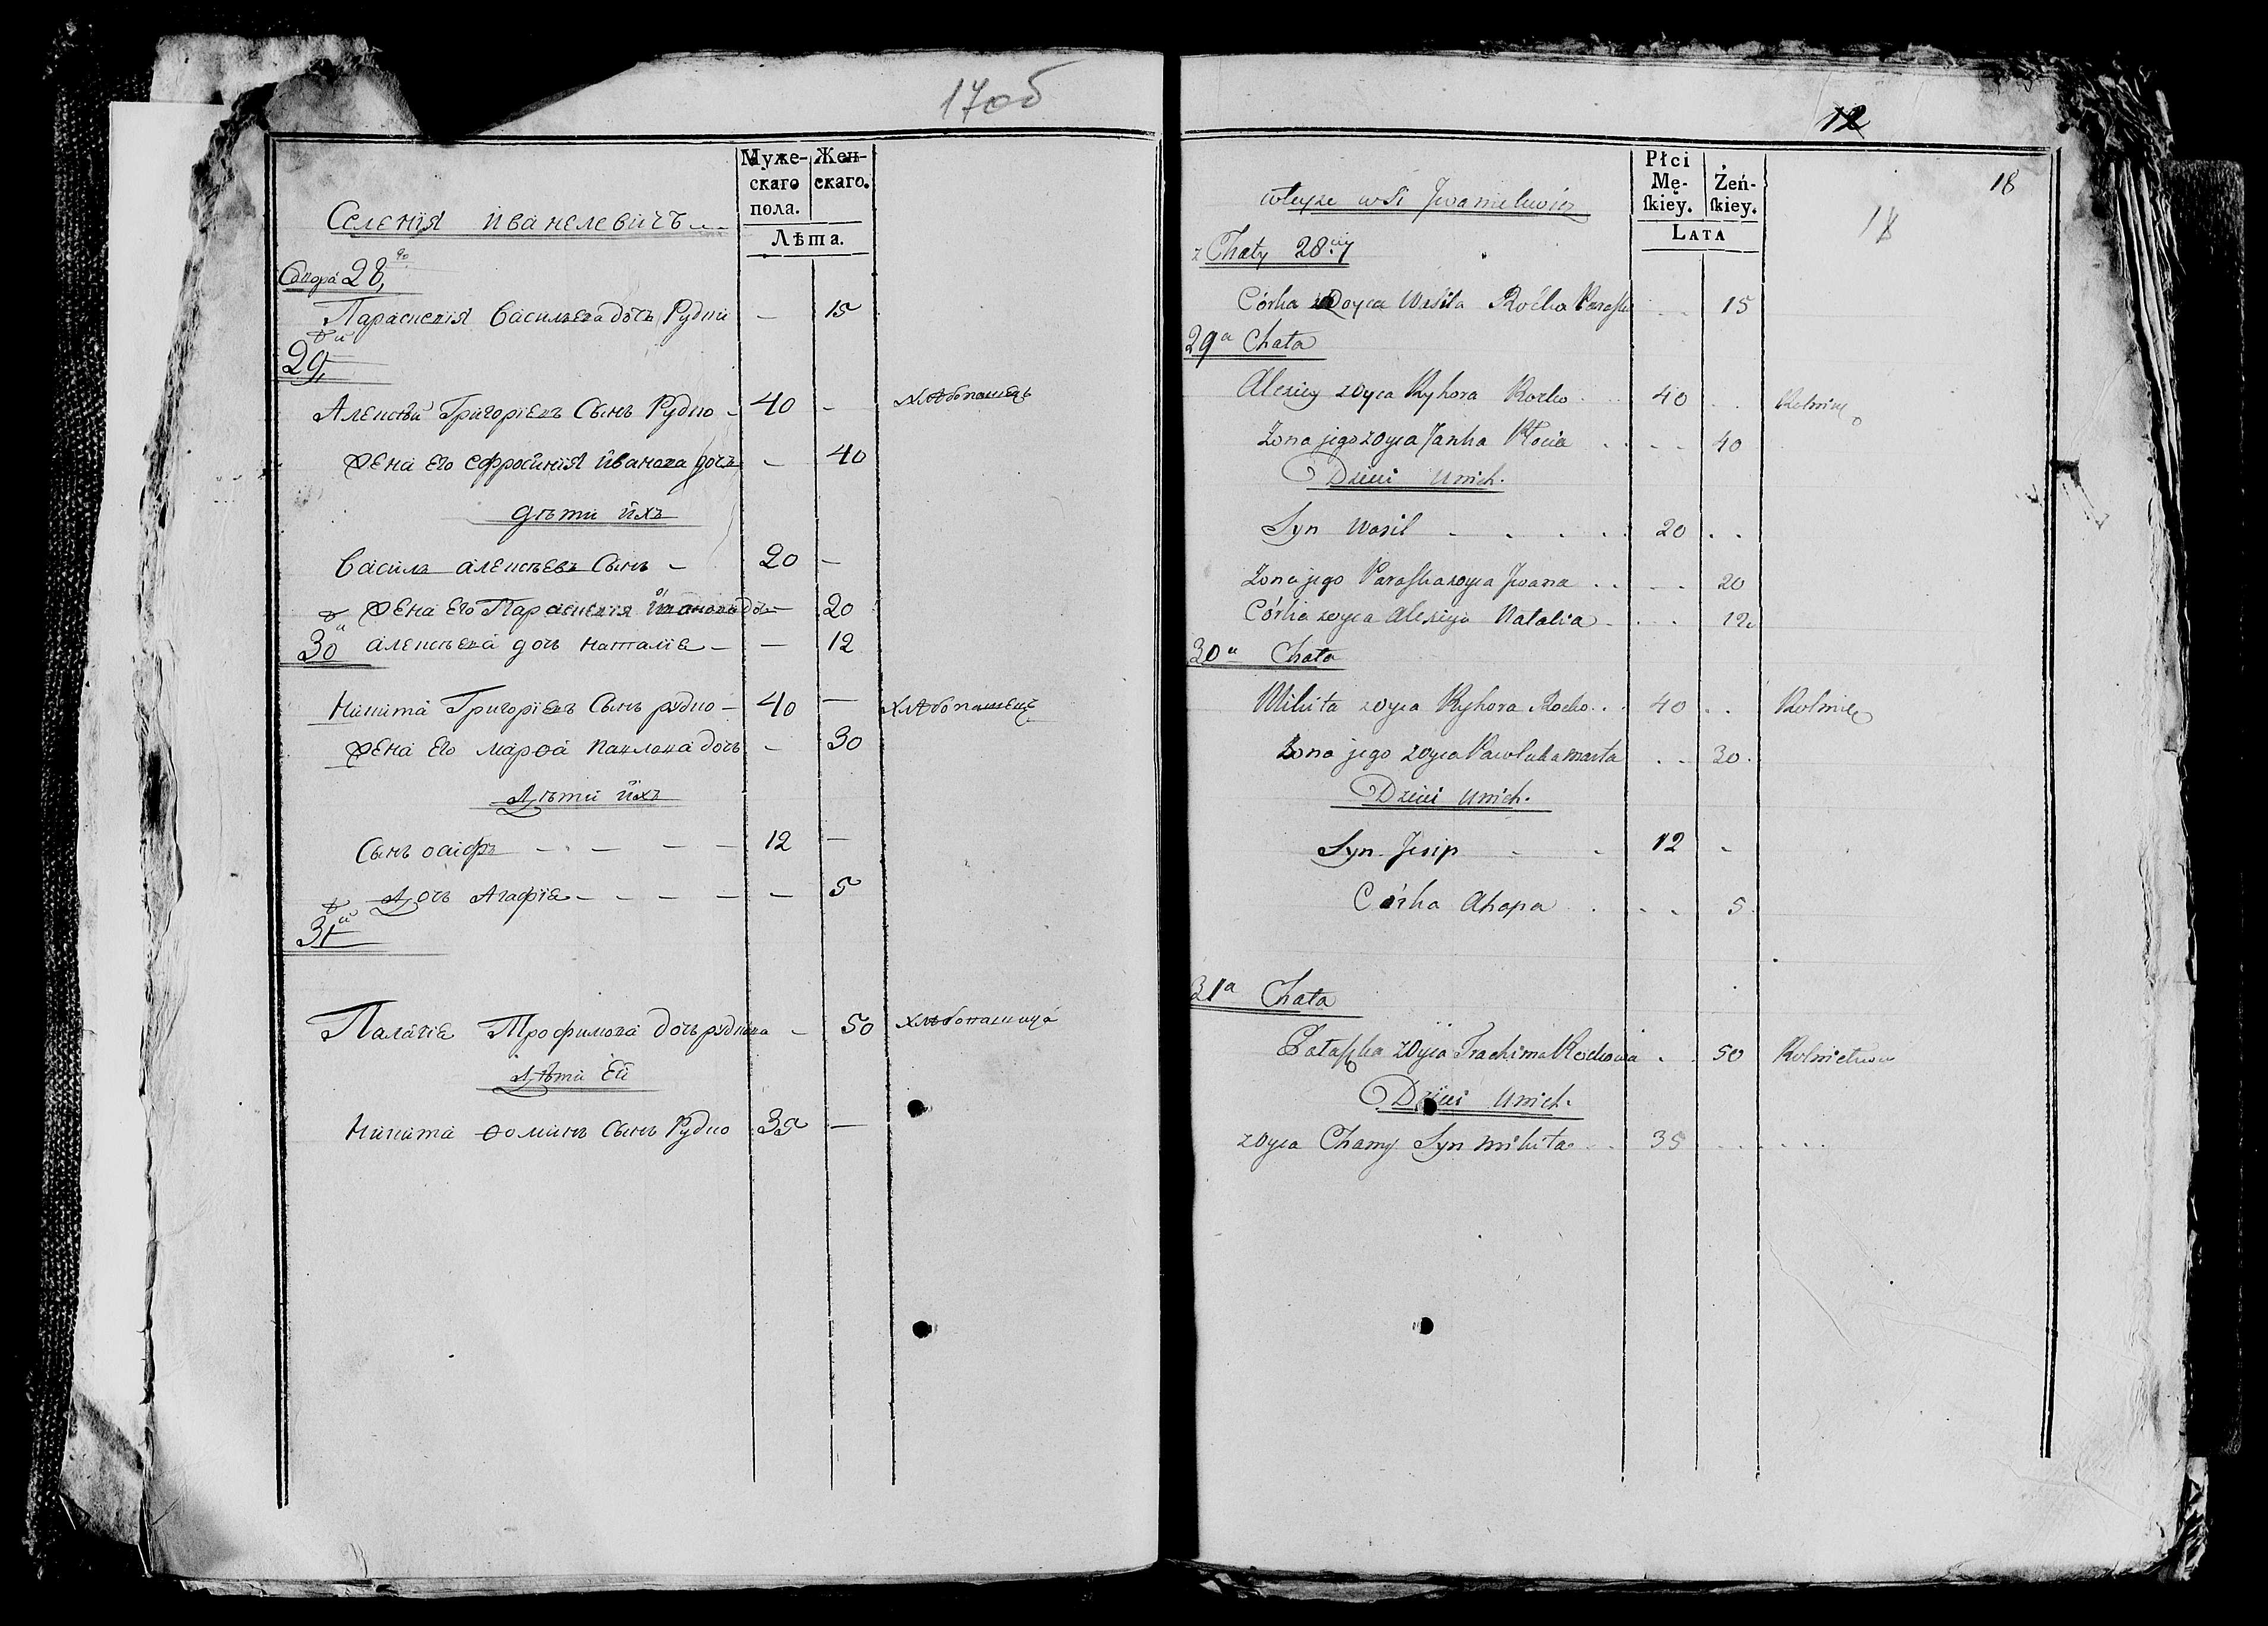 17об
Мужескаго пола.
Женскаго.
Лѣта.
Селенія Иванелевичъ
28го
Параскевія Васильева дочь Рудко - 15
29й
Алексѣй Григоріевъ Сынъ Рудко - 40 - хлѣбопашецъ
Жена Его Ефросинія Иванова дочь - 40
дѣти ихъ
Василь алексѣевъ Сынъ - 20 -
Жена Его Параскевія Иванова дочь - 20
30й
алексѣева дочь наталіа - - 12
Никита Григоріевъ Сынъ рудко - 40 - хлѣбопашецъ
Жена Его марѳа павлова дочь - 30
Дѣти ихъ
Сынъ осифъ - - - - 12 -
Дочь Агафіа - - - - - 5
31й
Палагіа Трофимова дочь - 50
Дѣти Ей
Никита ѳоминъ Сынъ Рудко 35 -
12
18
18
Płci Mę-
ſkiey.
Żeń-
ſkiey.
LATA
wteyże wsi
z Chaty 28iey
Córka zoyca Wasila 15
29a Chata
Alexiey zoyca Ryhora Rocko 40 . . Rolnik
Żona jego zoyca Janka . . - - 40
Dzieci Unich.
Syn Wasil - . . . . 20 . .
Żona jego Paraska zoyca Jwana . . - - 20
Córka zoyca Alexieja Natalia - . . . 12
30a Chata
Mikita zoyca Ryhora Rocko . . 40 . . Rolnik
Żona jego zoyca Pawluka Marta . . 30.
Dzieci Unich.
Syn Jesip - - 12 -
Córka Ahapa . . - 5.
31a Chata
zoyca Trachima Rockowa . 50 Rolnictwo
Dzieci Unich.
zoyca Chamy Syn Mikita . . 35 . . . . .